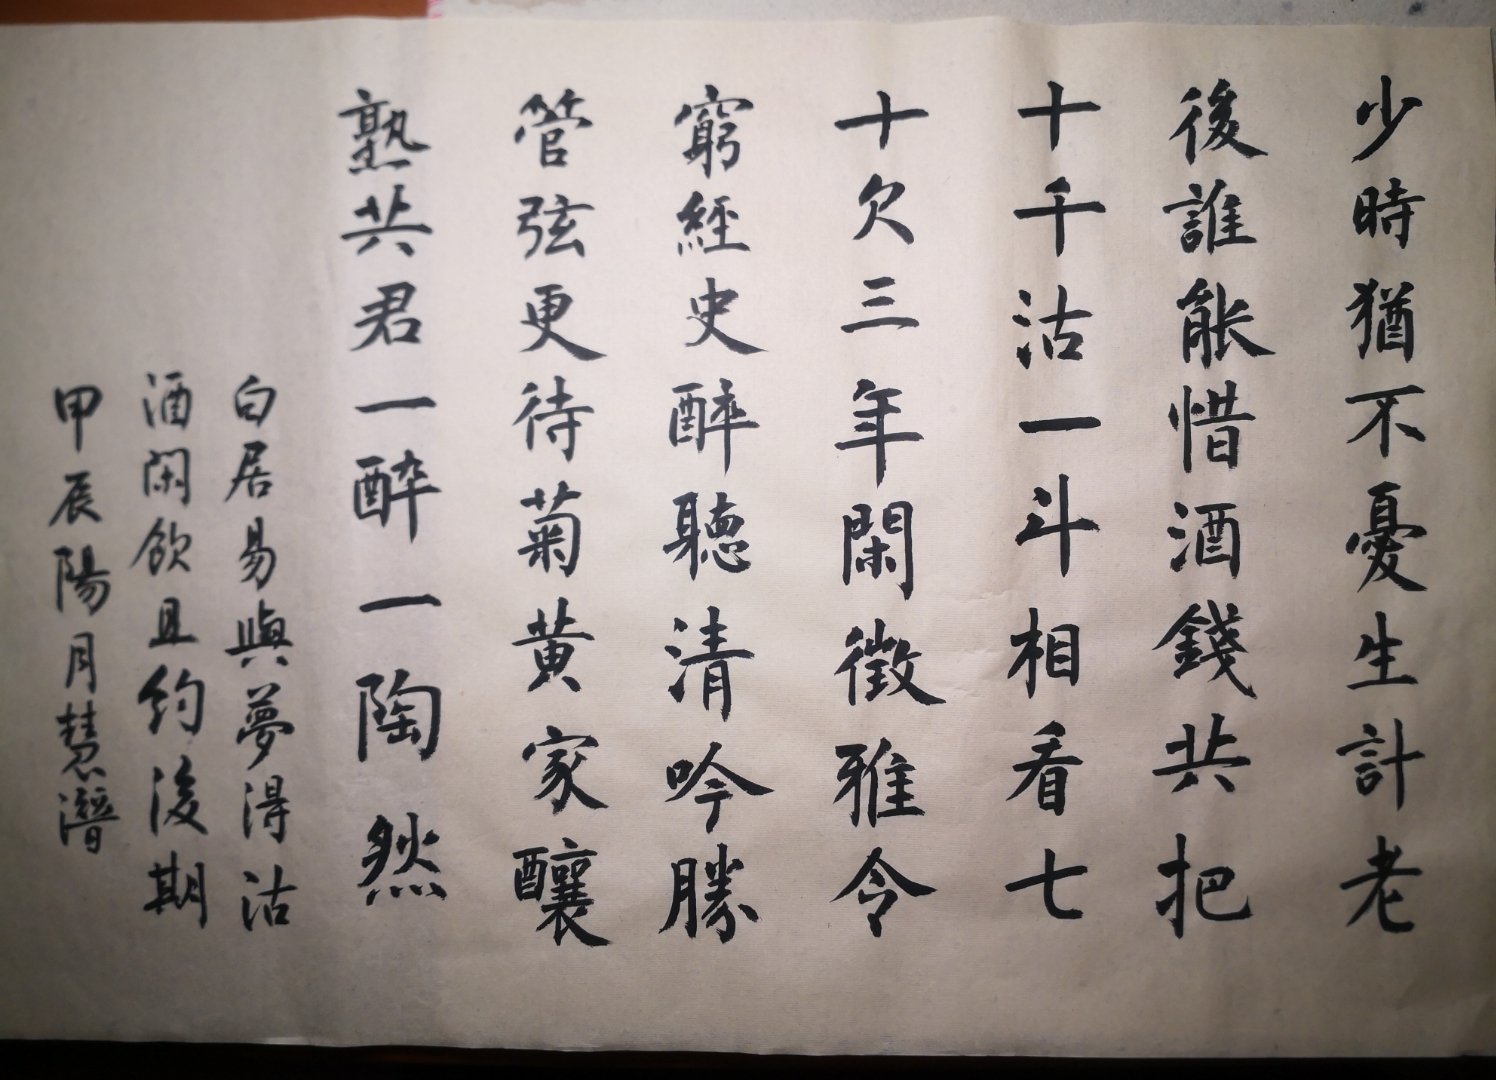 少時猶不憂生計老
後誰能惜酒錢共把
十千沽一斗相看七
十欠三年閑徵雅令
窮經史醉聽清吟勝
管弦更待菊黃家釀
熟共君一醉一陶然
白居易與夢得沽
酒閑飲且約後期
甲辰陽月慧潛